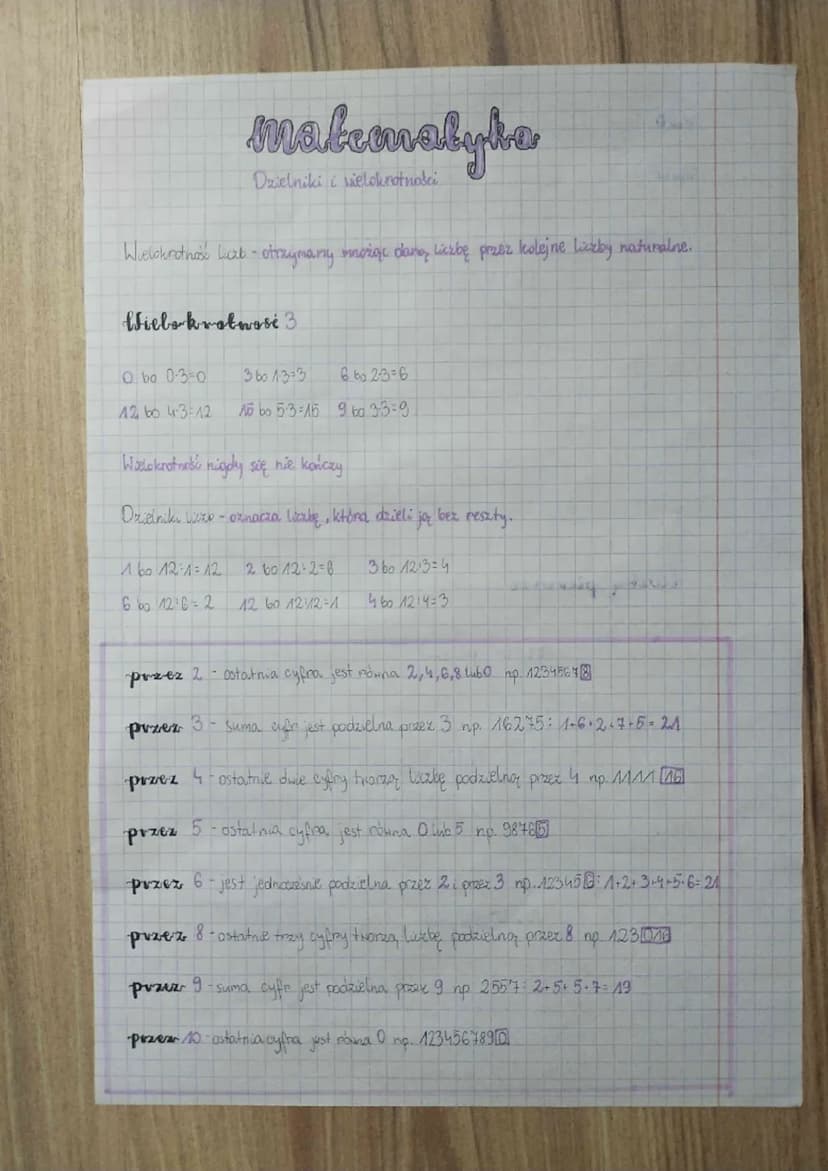 matematyka
Dzielniki i wielokrotności
Wielokrotność liczb - otrzymamy mnożąc daną liczbę przez kolejne liczby naturalne.
Wielokrotność 3
0 bo 0·3=0 3 bo 1·3=3 6 bo 2·3=6
12 bo 4·3=12 15 bo 5·3=15 9 bo 3·3=9
Wielokrotność nigdy się nie kończy
Dzielniki liczb - oznacza liczbę, która dzieli ją bez reszty.
1 bo 12:1=12 2 bo 12:2=6 3 bo 12:3=4
6 bo 12:6=2 12 bo 12:12=1 4 bo 12:4=3
przez 2 - ostatnia cyfra jest równa 2,4,6,8 lub 0 np. 12345678
przez 3 - suma cyfr jest podzielna przez 3 np. 16275: 1+6+2+7+5=21
przez 4 - ostatnie dwie cyfry tworzą liczbę podzielną przez 4 np. 1111 16
przez 5 - ostatnia cyfra jest równa 0 lub 5 np. 98765
przez 6 - jest jednocześnie podzielna przez 2 i przez 3 np. 123456: 1+2+3+4+5+6=21
przez 8 - ostatnie trzy cyfry tworzą liczbę podzielną przez 8 np. 123016
przez 9 - suma cyfr jest podzielna przez 9 np 2557: 2+5+5+7=19
przez 10 - ostatnia cyfra jest równa 0 np. 1234567890